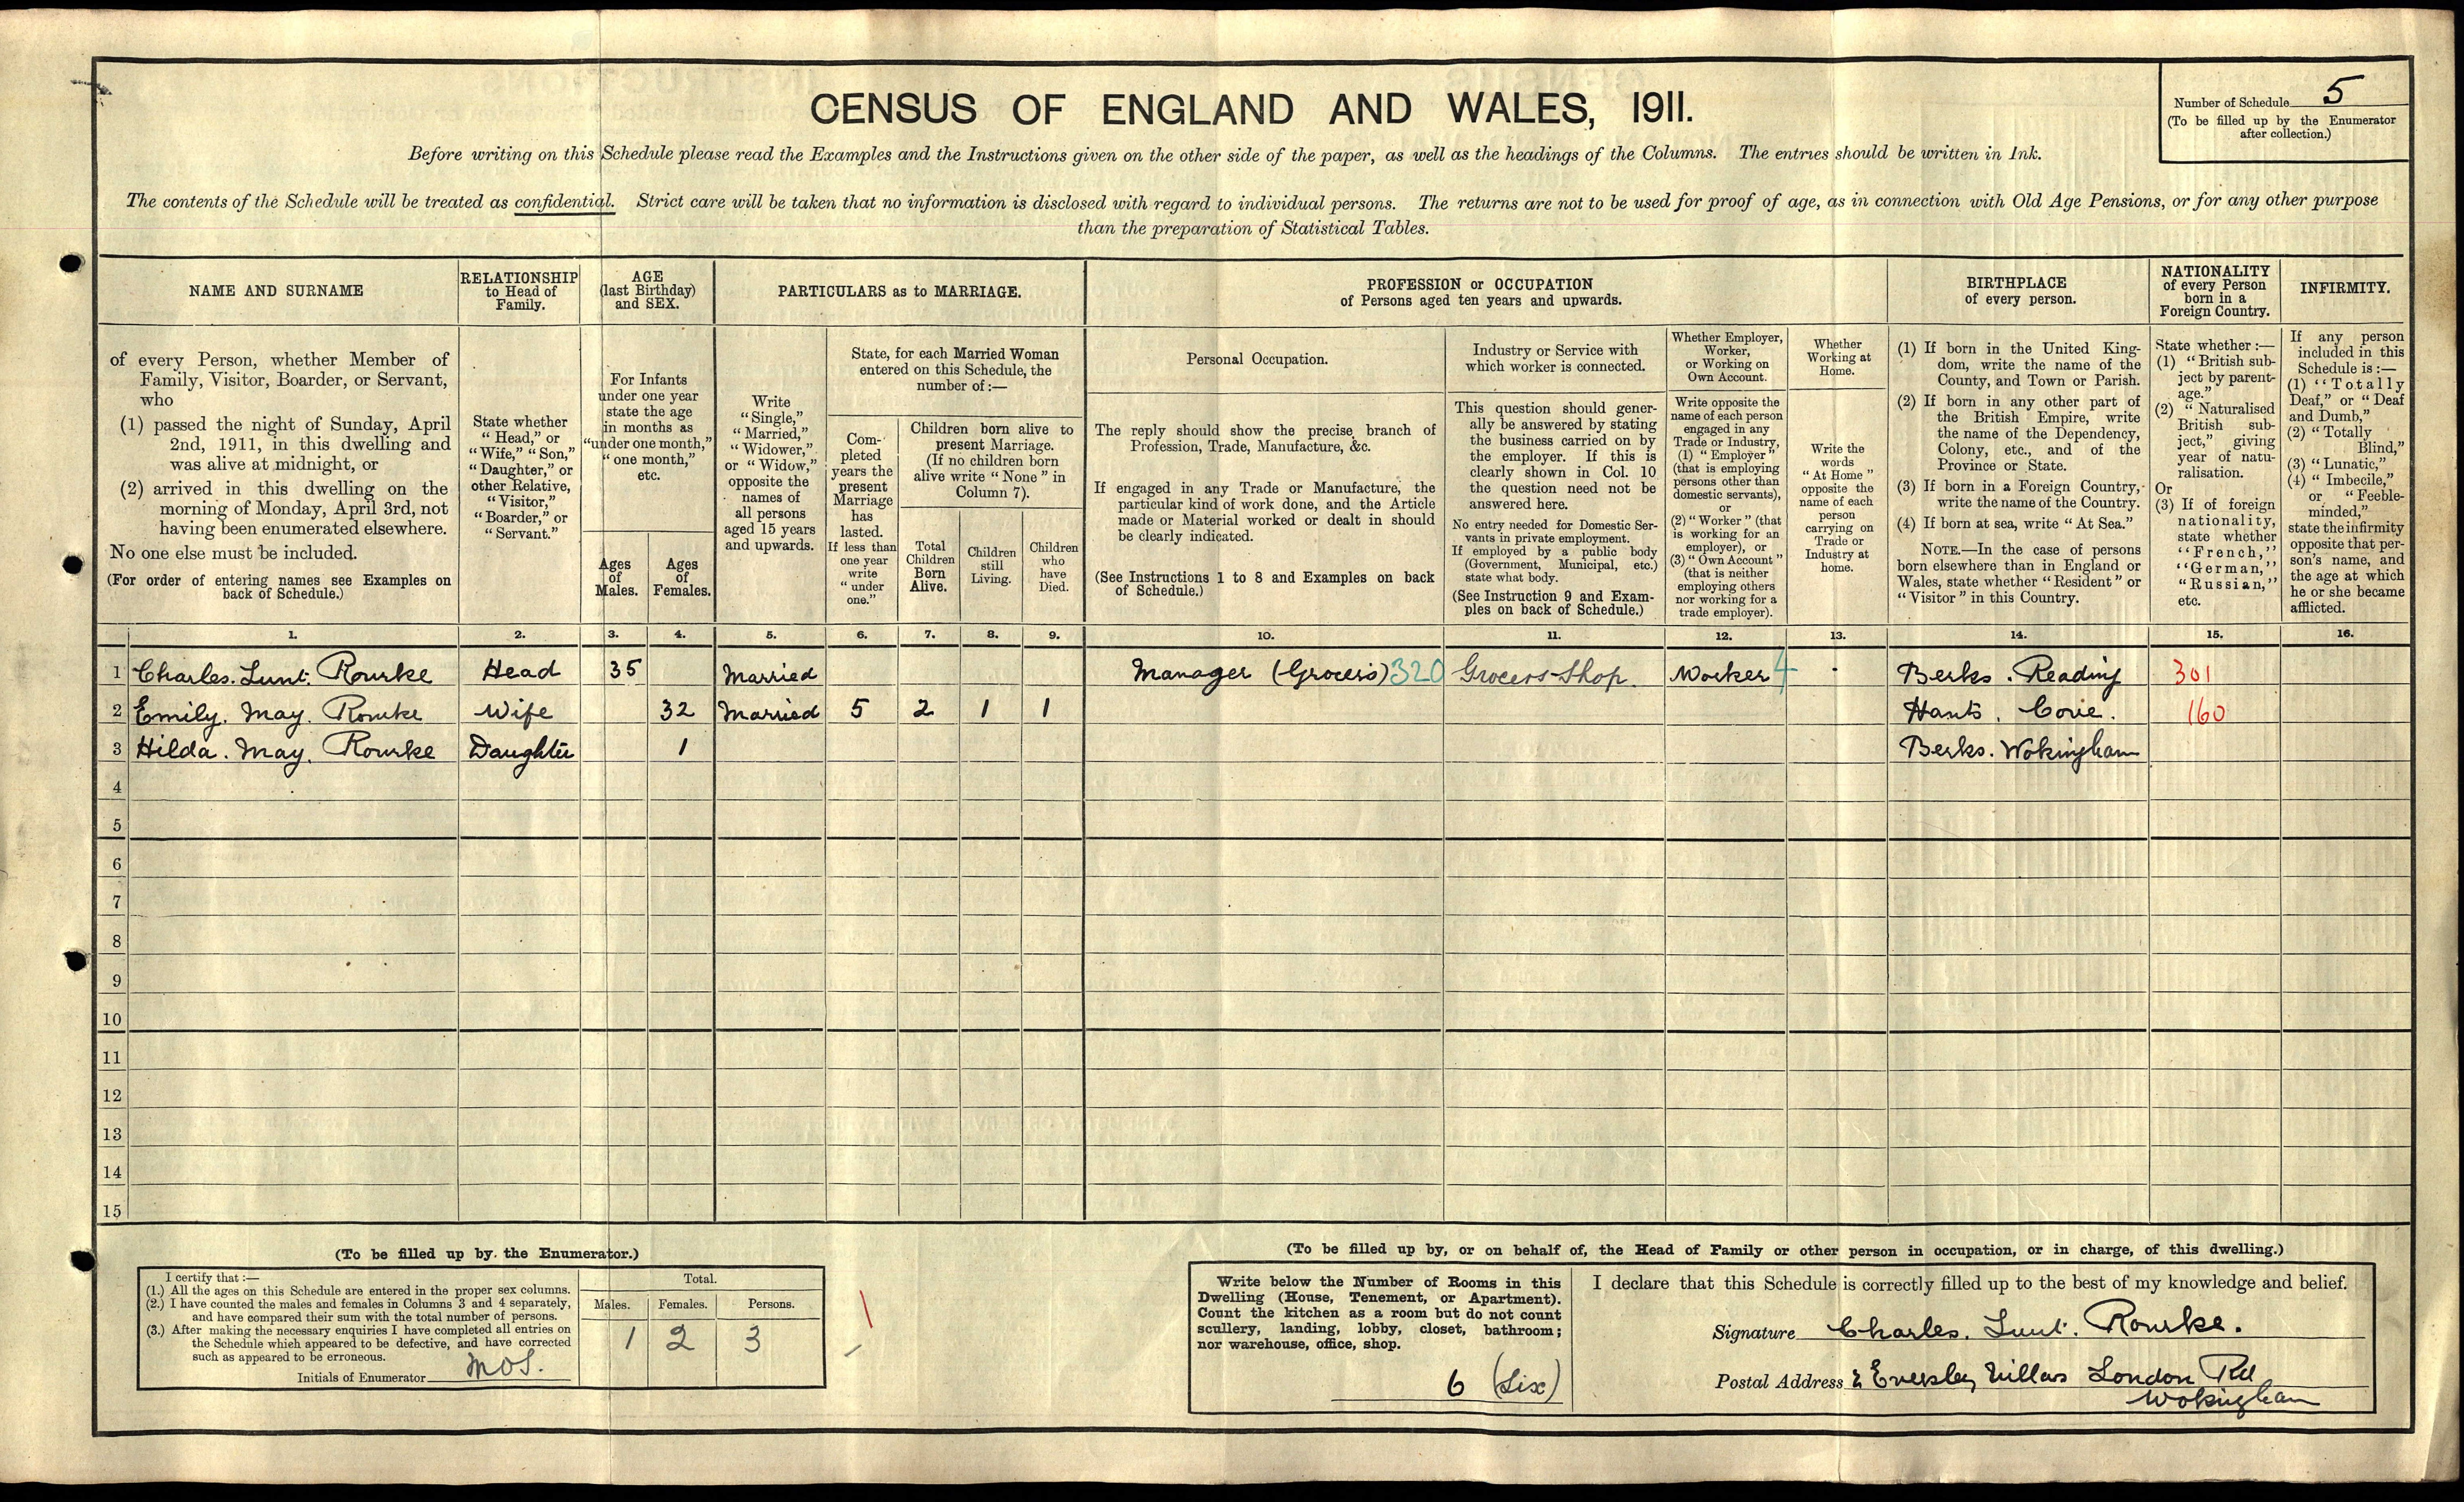 CENSUS OF ENGLAND AND WALES, 1911.
Number of Schedule 5
(To be filled up by the Enumerator
after collection.)
Before writing on this Schedule please read the Examples and the Instructions given on the other side of the paper, as well as the headings of the Columns. The entries should be written in Ink.
The contents of the Schedule will be treated as confidential. Strict care will be taken that no information is disclosed with regard to individual persons. The returns are not to be used for proof of age, as in connection with Old Age Pensions, or for any other purpose
than the preparation of Statistical Tables.
NAME AND SURNAME
of every Person, whether Member of
Family, Visitor, Boarder, or Servant,
who
(1) passed the night of Sunday, April
2nd, 1911, in this dwelling and
was alive at midnight, or
(2) arrived in this dwelling on the
morning of Monday, April 3rd, not
having been enumerated elsewhere.
No one else must be included.
(For order of entering names see Examples on
back of Schedule.)
RELATIONSHIP
to Head of
Family.
State whether
"Head," or
"Wife," "Son,"
"Daughter," or
other Relative,
"Visitor,"
"Boarder," or
"Servant."
AGE
(last Birthday)
and SEX.
For Infants
under one year
state the age
in months as
"under one month,"
"one month,"
etc.
Ages
of
Males.
Ages
of
Females.
PARTICULARS as to MARRIAGE.
Write
"Single,"
"Married,"
"Widower,"
or "Widow,"
opposite the
names of
all persons
aged 15 years
and upwards.
State, for each Married Woman
entered on this Schedule, the
number of:—
Com-
pleted
years the
present
Marriage
has
lasted.
If less than
one year
write
"under
one."
Children born alive to
present Marriage.
(If no children born
alive write "None" in
Column 7).
Total
Children
Born
Alive.
Children
still
Living.
Children
who
have
Died.
PROFESSION or OCCUPATION
of Persons aged ten years and upwards.
Personal Occupation.
The reply should show the precise branch of
Profession, Trade, Manufacture, &c.
If engaged in any Trade or Manufacture, the
particular kind of work done, and the Article
made or Material worked or dealt in should
be clearly indicated.
(See Instructions 1 to 8 and Examples on back
of Schedule.)
Industry or Service with
which worker is connected.
This question should gener-
ally be answered by stating
the business carried on by
the employer. If this is
clearly shown in Col. 10
the question need not be
answered here.
No entry needed for Domestic Ser-
vants in private employment.
If employed by a public body
(Government, Municipal, etc.)
state what body.
(See Instruction 9 and Exam-
ples on back of Schedule.)
Whether Employer,
Worker,
or Working on
Own Account.
Write opposite the
name of each person
engaged in any
Trade or Industry,
(1) "Employer"
(that is employing
persons other than
domestic servants),
or
(2) "Worker" (that
is working for an
employer), or
(3) "Own Account"
(that is neither
employing others
nor working for a
trade employer).
Whether
Working at
Home.
Write the
words
"At Home"
opposite the
name of each
person
carrying on
Trade or
Industry at
home.
BIRTHPLACE
of every person.
(1) If born in the United King-
dom, write the name of the
County, and Town or Parish.
(2) If born in any other part of
the British Empire, write
the name of the Dependency,
Colony, etc., and of the
Province or State.
(3) If born in a Foreign Country,
write the name of the Country.
(4) If born at sea, write "At Sea."
NOTE.—In the case of persons
born elsewhere than in England or
Wales, state whether "Resident" or
"Visitor" in this Country.
NATIONALITY
of every Person
born in a
Foreign Country.
State whether:—
(1) "British sub-
ject by parent-
age."
(2) "Naturalised
British sub-
ject," giving
year of natu-
ralisation.
Or
(3) If of foreign
nationality,
state whether
"French,"
"German,"
"Russian,"
etc.
INFIRMITY.
If any person
included in this
Schedule is:—
(1) "Totally
Deaf," or "Deaf
and Dumb,"
(2) "Totally
Blind,"
(3) "Lunatic,"
(4) "Imbecile,"
or "Feeble-
minded,"
state the infirmity
opposite that per-
son's name, and
the age at which
he or she became
afflicted.
1. 2. 3. 4. 5. 6. 7. 8. 9. 10. 11. 12. 13. 14. 15. 16.
1 Charles. Lunt. Rourke Head 35 Married Manager (Grocer's) 320 Grocers Shop. Worker 4 - Berks. Reading 301
2 Emily. May. Rourke Wife 32 Married 5 2 1 1 Hants. Cove. 160
3 Hilda. May. Rourke Daughter 1 Berks. Wokingham
4
5
6
7
8
9
10
11
12
13
14
15
(To be filled up by the Enumerator.)
I certify that:—
(1.) All the ages on this Schedule are entered in the proper sex columns.
(2.) I have counted the males and females in Columns 3 and 4 separately,
and have compared their sum with the total number of persons.
(3.) After making the necessary enquiries I have completed all entries on
the Schedule which appeared to be defective, and have corrected
such as appeared to be erroneous.
Initials of Enumerator MOS.
Total.
Males. Females. Persons.
1 2 3
(To be filled up by, or on behalf of, the Head of Family or other person in occupation, or in charge, of this dwelling.)
Write below the Number of Rooms in this
Dwelling (House, Tenement, or Apartment).
Count the kitchen as a room but do not count
scullery, landing, lobby, closet, bathroom;
nor warehouse, office, shop.
6 (Six)
I declare that this Schedule is correctly filled up to the best of my knowledge and belief.
Signature Charles. Lunt. Rourke.
Postal Address 2 Eversley Villas London Rd
Wokingham